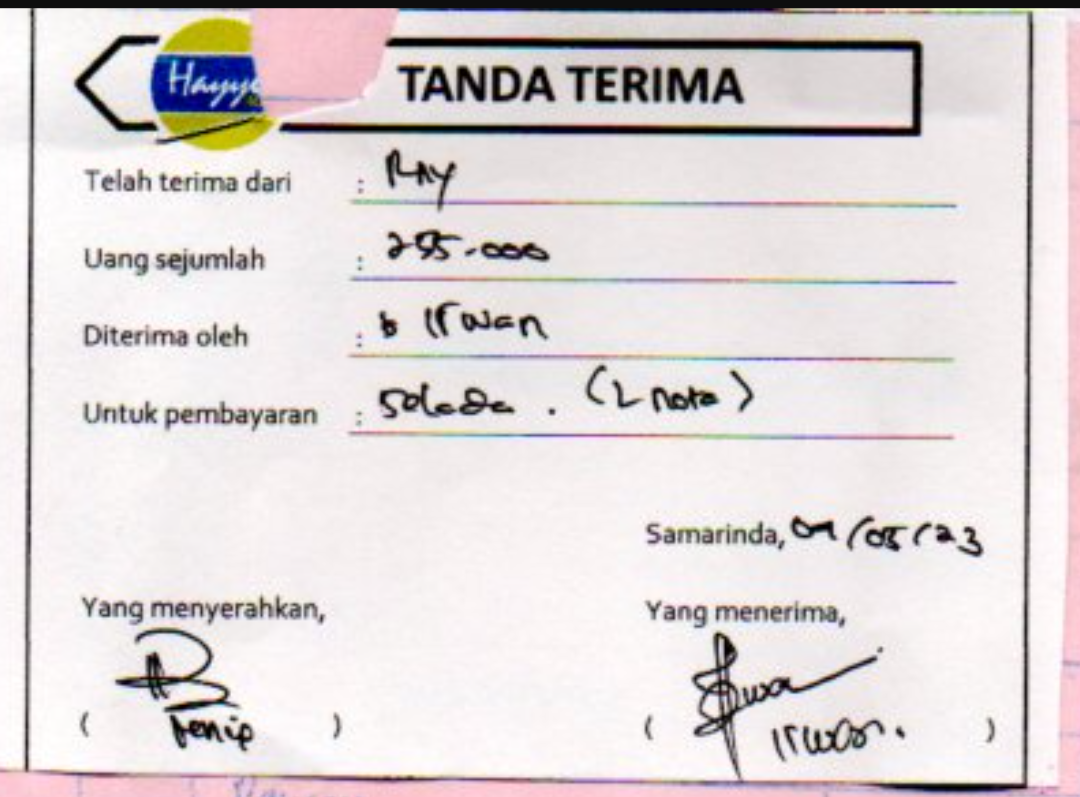 Hayye
TANDA TERIMA
Telah terima dari : RAY
Uang sejumlah : 255.000
Diterima oleh : Irwan
Untuk pembayaran : Selada . (2 nota)
Samarinda, 09/05/23
Yang menyerahkan,
Yang menerima,
( ) ( Irwan. )